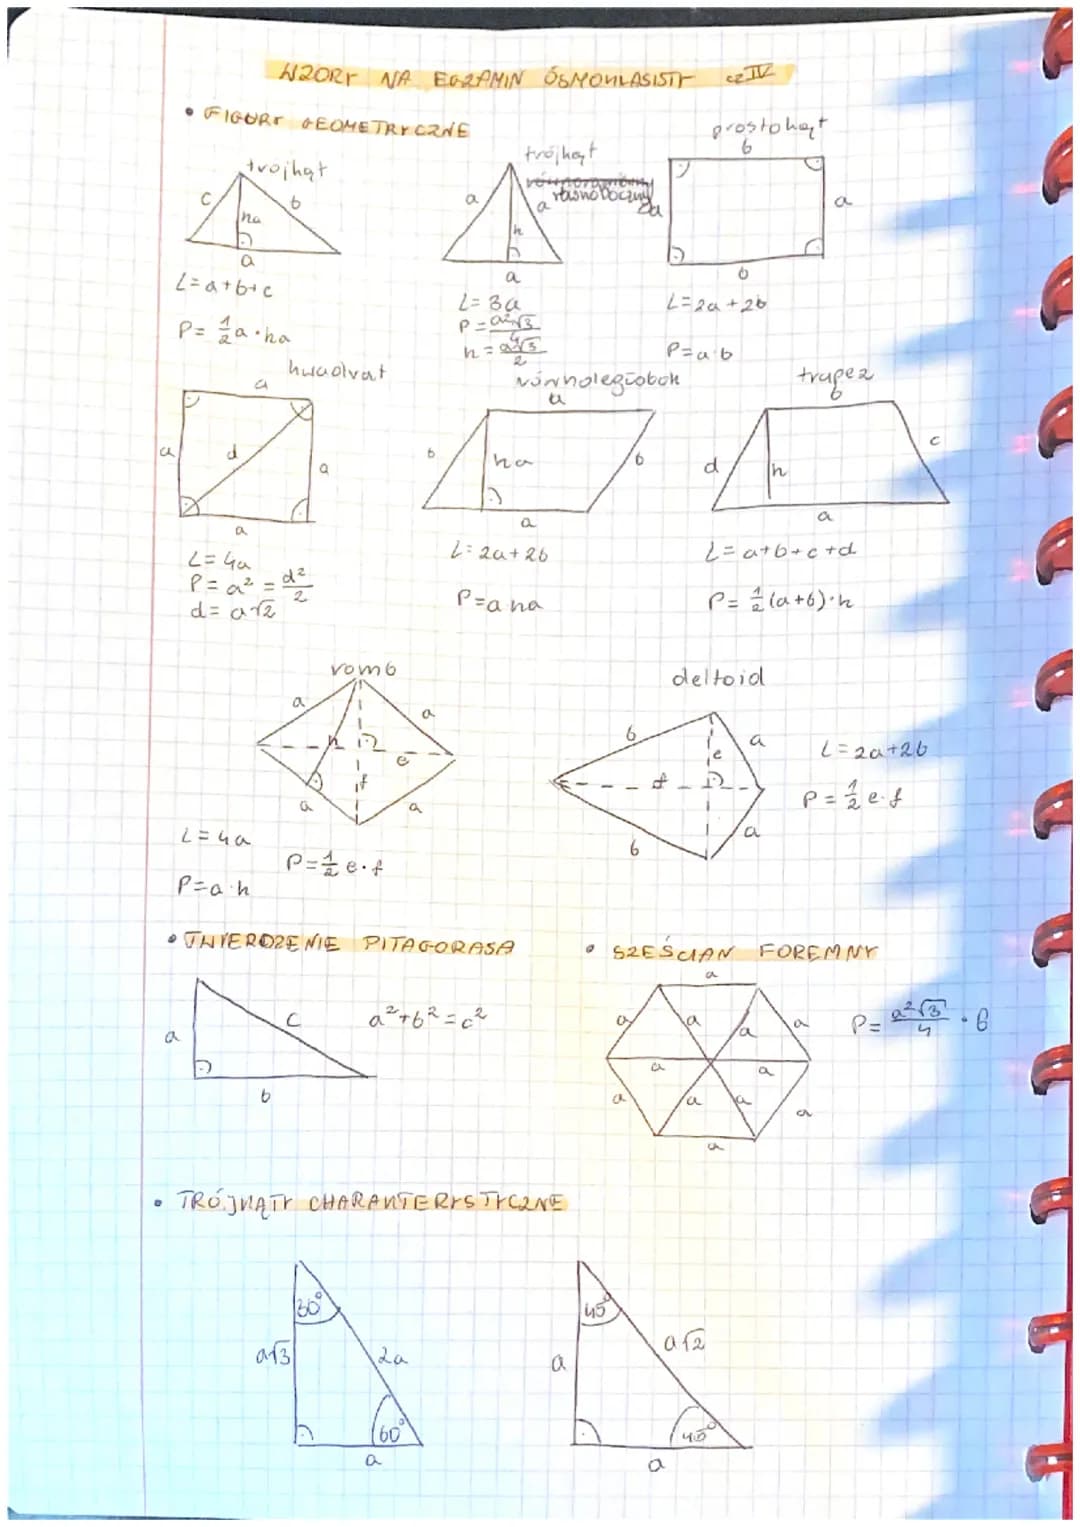 WZORY NA EGZAMIN ÓSMOKLASISTY cz IV
• FIGURY GEOMETRYCZNE
trójkąt
c
b
ha
a
L=a+b+c
P= 1/2 a·ha
trójkąt
równoboczny
a
a
h
a
L= 3a
P= a²√3/4
h= a√3/2
prostokąt
b
a
a
b
L=2a+2b
P=a·b
kwadrat
a
a
d
a
a
L= 4a
P= a² = d²/2
d= a√2
równoległobok
a
b
ha
b
a
L= 2a+2b
P=a ha
trapez
b
d
h
c
a
L= a+b+c+d
P= 1/2 (a+b)·h
romb
a
a
h
e
f
a
a
L=4a
P=1/2 e·f
P=a·h
deltoid
b
a
e
f
b
a
L=2a+2b
P= 1/2 e·f
• TWIERDZENIE PITAGORASA
a
c
b
a²+b²=c²
• SZEŚCIAN FOREMNY
a
a
a
a
a
a
a
a
a
a
a
a
P= a²√3/4 · 6
• TRÓJKĄTY CHARAKTERYSTYCZNE
30°
a√3
2a
60°
a
45°
a
a√2
45°
a